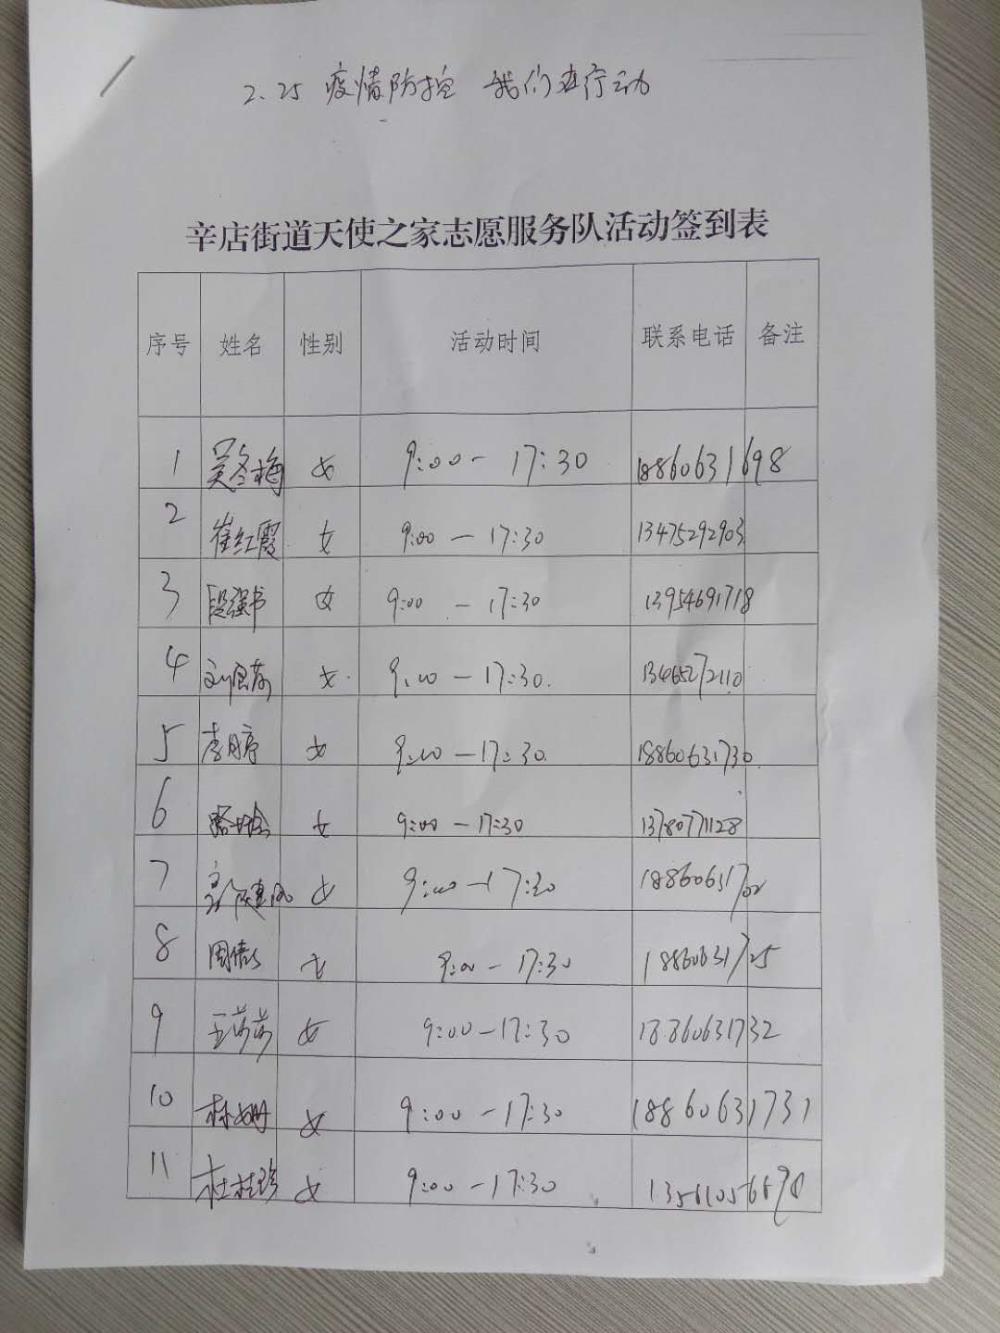 2.25 疫情防控 我们在行动
辛店街道天使之家志愿服务队活动签到表
序号 姓名 性别 活动时间 联系电话 备注
1 吴冬梅 女 9:00-17:30 18860631698
2 崔红霞 女 9:00-17:30 13475292903
3 女 9:00-17:30 13954691718
4 女 9:00-17:30. 13465272110
5 女 9:00-17:30. 18860631730.
6 女 9:00-17:30 13780771128
7 女 9:00-17:30 18860631702
8 周倩 女 9:00-17:30 18860631725
9 王芳芳 女 9:00-17:30 18860631732
10 林姗 女 9:00-17:30 18860631731
11 杜桂珍 女 9:00-17:30